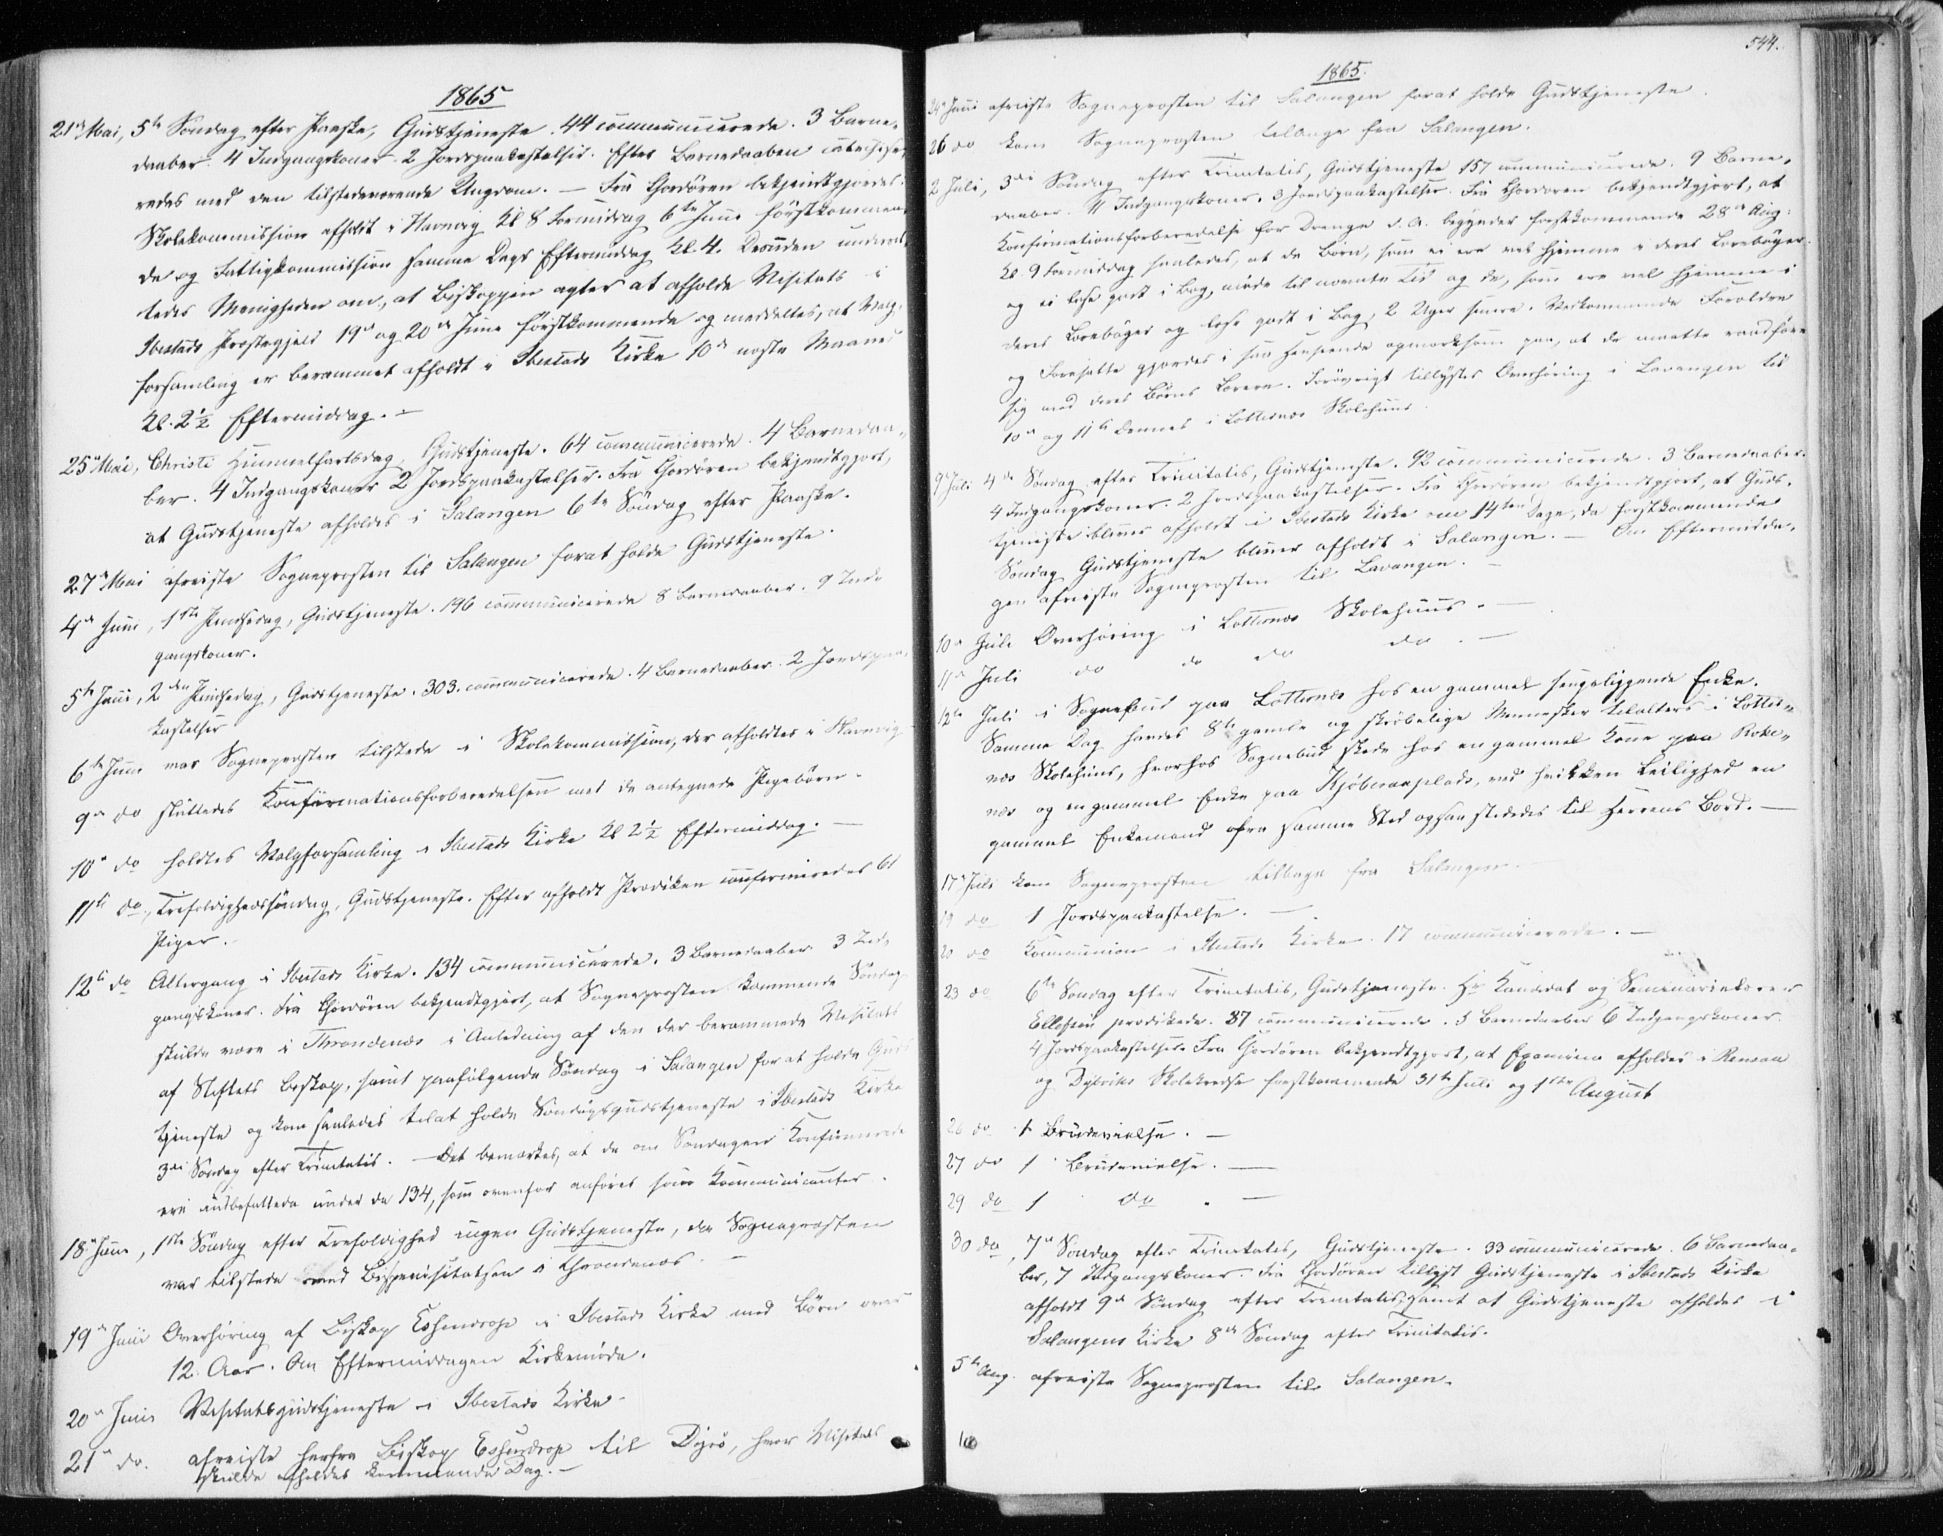 1865
21de Mai, 5te Søndag efter Paaske, Gudstjeneste. 44 communicerede. 3 Barne-
daaber. 4 Indgangskoner. 2 Jordspaakastelser. Efter Barnedaaben catechise-
redes med den tilstedeværende Ungdom. — Fra Chordøren bekjendtgjordes
Skolekommission afholdt i Havnvig Kl 8 Formiddag 6te Juni førstkommen-
de og Fattigkommission samme Dags Eftermiddag Kl. 4. Desuden underret-
tedes Menigheden om, at Biskoppen agter at afholde Visitats i
Ibestads Præstegjeld 19de og 20de Juni førstkommende og meddeltes, at Valg-
forsamling er berammet afholdt i Ibestads Kirke 10de næste Maaned
Kl. 2½ Eftermiddag. —
25de Mai, Christi Himmelfartsdag, Gudstjeneste. 64 communicerede. 4 Barnedaa-
ber. 4 Indgangskoner 2 Jordspaakastelser. Fra Chordøren bekjendtgjort,
at Gudstjeneste afholdes i Salangen 6te Søndag efter Paaske.
27de Mai afreiste Sogneprosten til Salangen forat holde Gudstjeneste.
4de Juni, 1ste Pintsedag, Gudstjeneste. 196 communicerede 8 Barnedaaber. 9 Ind-
gangskoner.
5te Juni, 2den Pintsedag, Gudstjeneste. 303 communicerede. 4 Barnedaaber. 2 Jordspaa-
kastelser
6te Juni var Sogneprosten tilstede i Skolekommission, der afholdtes i Havnvig
9de do sluttedes Konfirmationsforberedelsen met de antegnede Pigebørn.
10de do holdtes Valgforsamling i Ibestads Kirke Kl 2½ Eftermiddag. —
11te do, Trefoldighedssøndag, Gudstjeneste. Efter afholdt Prædiken confirmeredes 61
Piger.
12te do Altergang i Ibestads Kirke. 134 communicerede. 3 Barnedaaber 3 Ind-
gangskoner. Fra Chordøren bekjendtgjort, at Sogneprosten kommende Søndag
skulde være i Throndenæs i Anledning af den der berammede Visitats
af Stiftets Biskop, samt paafølgende Søndag i Salangen forat holde Guds
tjeneste og kom saaledes til at holde Søndagsgudstjeneste i Ibestads Kirke
3die Søndag efter Trinitatis. — Det bemærkes, at de om Søndagen Konfirmerede
ere indbefattede under de 134, som ovenfor anføres som Kommunicanter.
18de Juni, 1ste Søndag efter Trefoldighed ingen Gudstjeneste, da Sogneprosten
var tilstede ved Bispevisitatsen i Throndenæs. —
19de Juni Overhøring af Biskop Essendrop i Ibestads Kirke med Børn over
12 Aar. Om Eftermiddagen Kirkemøde.
20de Juni Visitatsgudstjeneste i Ibestads Kirke
21de do. afreiste herfra Biskop Essendrop til Dyrø, hvor Visitats
skulde afholdes kommende Dag. —
544.
1865.
24de Juni afreiste Sogneprosten til Salangen forat holde Gudstjeneste.
26 do kom Sogneprosten tilbage fra Salangen.
2 Juli, 3die Søndag efter Trinitatis, Gudstjeneste 157 communicerede. 9 Barne-
daaber. 4 Indgangskoner. 3 Jordspaakastelser. Fra Chordøren bekjendtgjort, at
Konfirmationsforberedelse for Drenge d. A. begynder førstkommende 28de Aug.
Kl. 9 Formiddag saaledes, at de Børn, som ei ere vel hjemme i deres Lærebøger
og ei læse godt i Bog, møde til nævnte Tid og de, som ere vel hjemme i
deres Lærebøger og læse godt i Bog, 2 Uger senere. Vedkommende Forældre
og Foresatte gjordes i saa Henseende opmærksom paa, at de maatte raadføre
sig med deres Børns Lærere. Forøvrigt tillystes Overhøring i Lavangen til
10de og 11te dennes i Lottenæs Skolehuus.
9de Juli 4de Søndag efter Trinitatis, Gudstjeneste. 92 communicerede. 3 Barnedaaber.
4 Indgangskoner. 2 Jordspaakastelser. Fra Chordøren bekjendtgjort, at Guds-
tjeneste bliver afholdt i Ibestads Kirke om 14ten Dage, da førstkommende
Søndag Gudstjeneste bliver afholdt i Salangen. — Om Eftermidda-
gen afreiste Sogneprosten til Lavangen. —
10de Juli Overhøring i Lottenæs Skolehuus. —
11te Juli do do do do. —
12te Juli i Sognebud paa Lottenæs hos en gammel sengeliggende Enke.
Samme Dag havdes 8te gamle og skrøbelige Mennesker tilalters i Lotte-
næs Skolehuus, hvorhos Sognebud skede hos en gammel Kone paa Roke-
næs og en gammel Enke paa Kjøbmansplads, ved hvilken Leilighed en
gammel Enkemand fra samme Sted ogsaa stededes til Herrens Bord. —
17de Juli kom Sogneprosten tilbage fra Salangen. —
19 do 1 Jordspaakastelse. —
20 do Kommunion i Ibestads Kirke. 17 communicerede. —
23 do 6te Søndag efter Trinitatis, Gudstjeneste. Hr Kandidat og Seminarielærer
Ellefsen prædikede. 87 communicerede. 5 Barnedaaber 6 Indgangskoner
4 Jordspaakastelser. Fra Chordøren bekjendtgjort, at Examina afholdes i
og Skolekredse førstkommende 31te Juli og 1ste August
26 do 1 Brudevielse. —
27 do 1 Brudevielse. —
29 do 1 do. —
30 do, 7de Søndag efter Trinitatis, Gudstjeneste. 33 communicerede. 6 Barnedaa-
ber, 7 Indgangskoner. Fra Chordøren tillyst Gudstjeneste i Ibestads Kirke
afholdt 9de Søndag efter Trinitatis, samt at Gudstjeneste afholdes i
Salangens Kirke 8de Søndag efter Trinitatis.
5te Aug. afreiste Sogneprosten til Salangen.